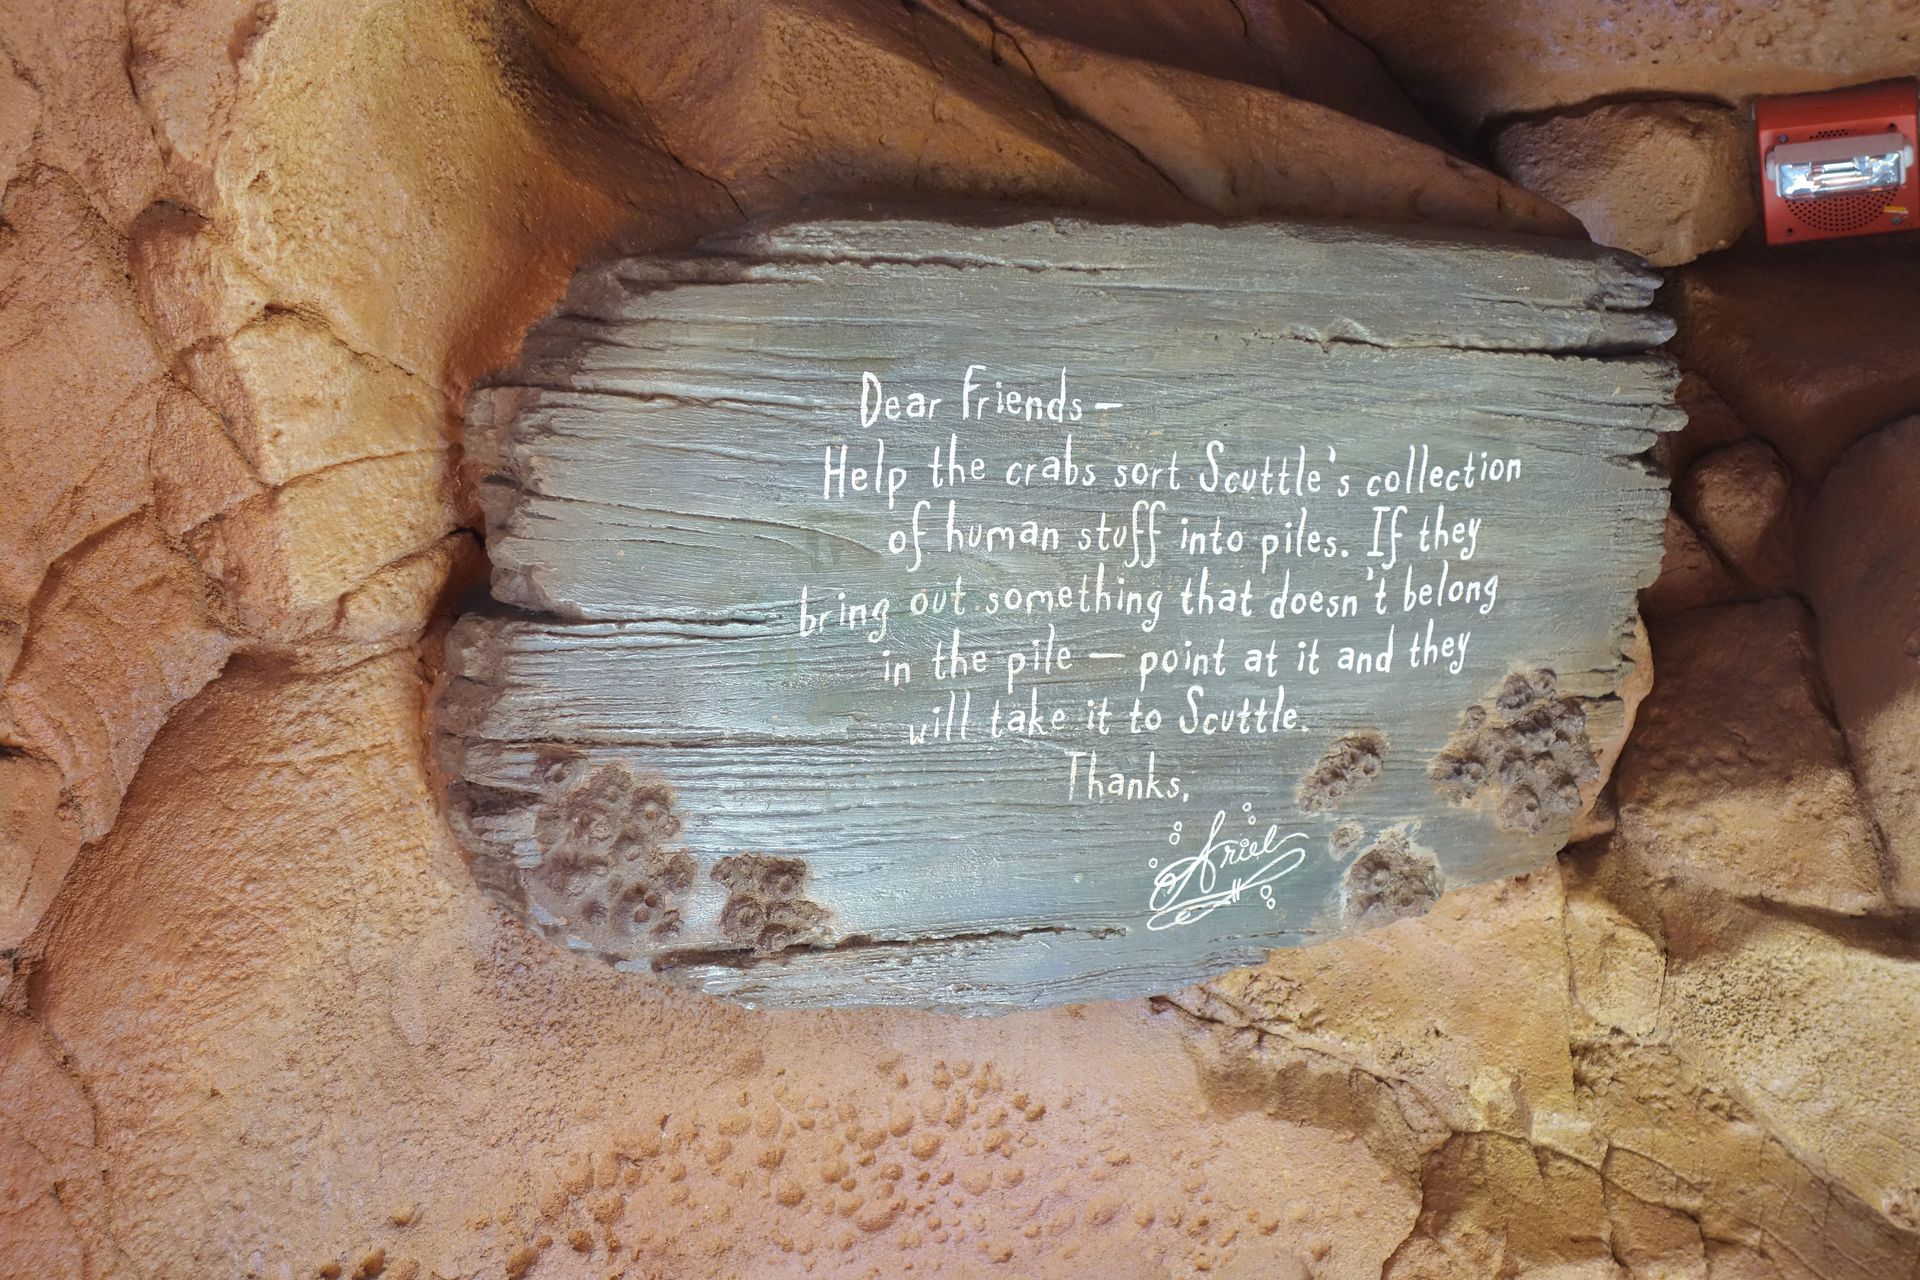 Dear Friends —
Help the crabs sort Scuttle's collection
of human stuff into piles. If they
bring out something that doesn't belong
in the pile — point at it and they
will take it to Scuttle.
Thanks,
Ariel